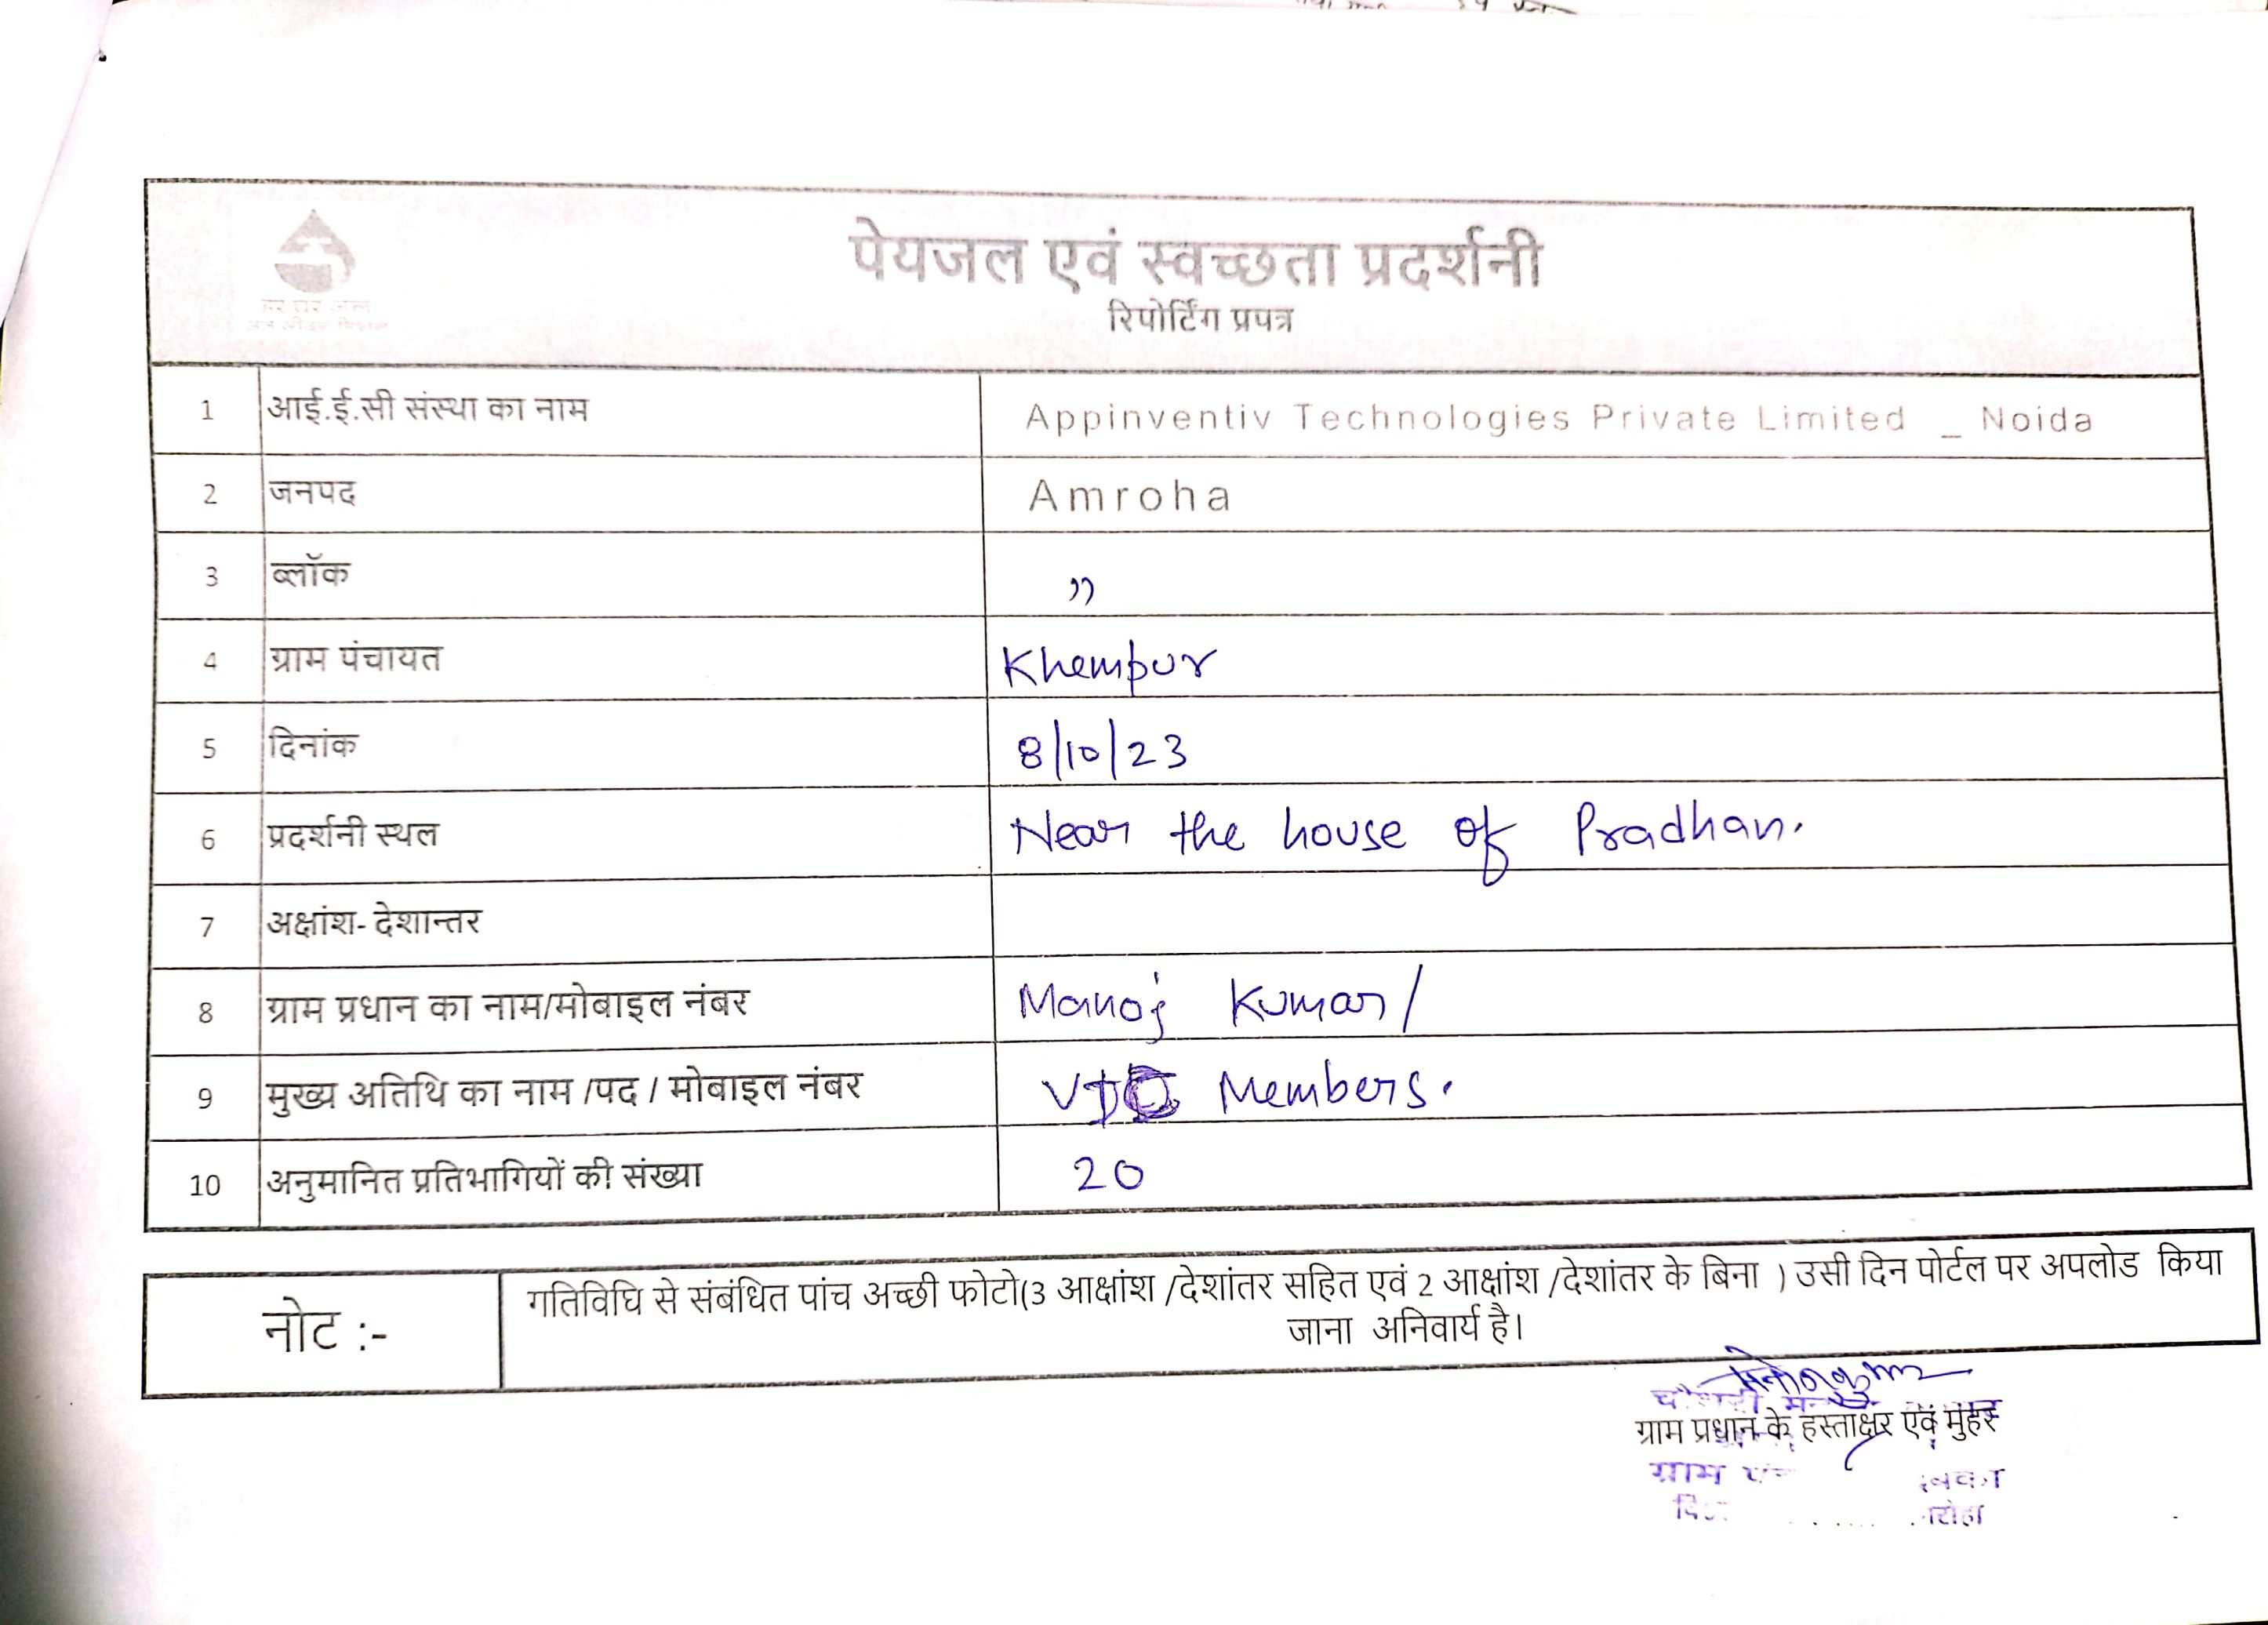 हर घर जल
जल जीवन मिशन
पेयजल एवं स्वच्छता प्रदर्शनी
रिपोर्टिंग प्रपत्र
1 आई.ई.सी संस्था का नाम Appinventiv Technologies Private Limited _ Noida
2 जनपद Amroha
3 ब्लॉक "
4 ग्राम पंचायत Khempur
5 दिनांक 8/10/23
6 प्रदर्शनी स्थल Near the house of Pradhan.
7 अक्षांश- देशान्तर
8 ग्राम प्रधान का नाम/मोबाइल नंबर Manoj Kumar/
9 मुख्य अतिथि का नाम /पद / मोबाइल नंबर Members.
10 अनुमानित प्रतिभागियों की संख्या 20
नोट :- गतिविधि से संबंधित पांच अच्छी फोटो(3 आक्षांश /देशांतर सहित एवं 2 आक्षांश /देशांतर के बिना ) उसी दिन पोर्टल पर अपलोड किया
जाना अनिवार्य है।
मनोज कुमार
ग्राम प्रधान के हस्ताक्षर एवं मुहर
ग्राम